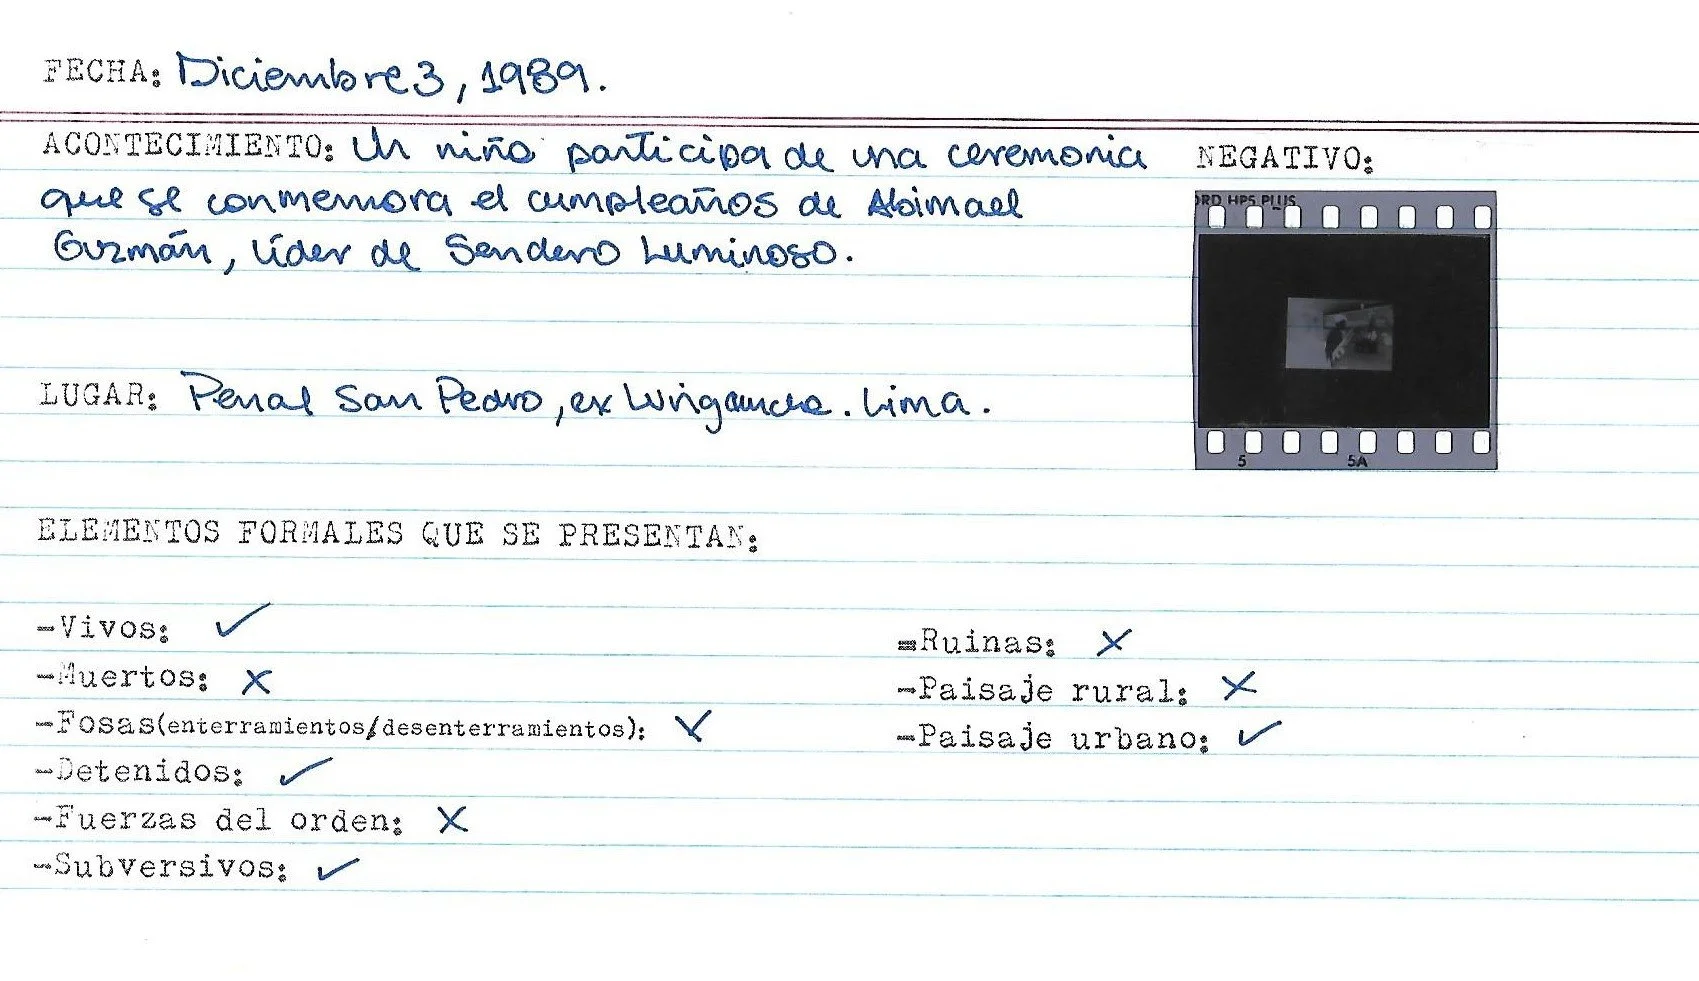 FECHA: Diciembre 3, 1989.
ACONTECIMIENTO: Un niño participa de una ceremonia
que se conmemora el cumpleaños de Abimael
Guzmán, líder de Sendero Luminoso.
NEGATIVO:
ORD HP5 PLUS
5 5A
LUGAR: Penal San Pedro, ex Lurigancho. Lima.
ELEMENTOS FORMALES QUE SE PRESENTAN:
-Vivos: ✓
-Muertos: X
-Fosas(enterramientos/desenterramientos): X
-Detenidos: ✓
-Fuerzas del orden: X
-Subversivos: ✓
=Ruinas: X
-Paisaje rural: X
-Paisaje urbano: ✓